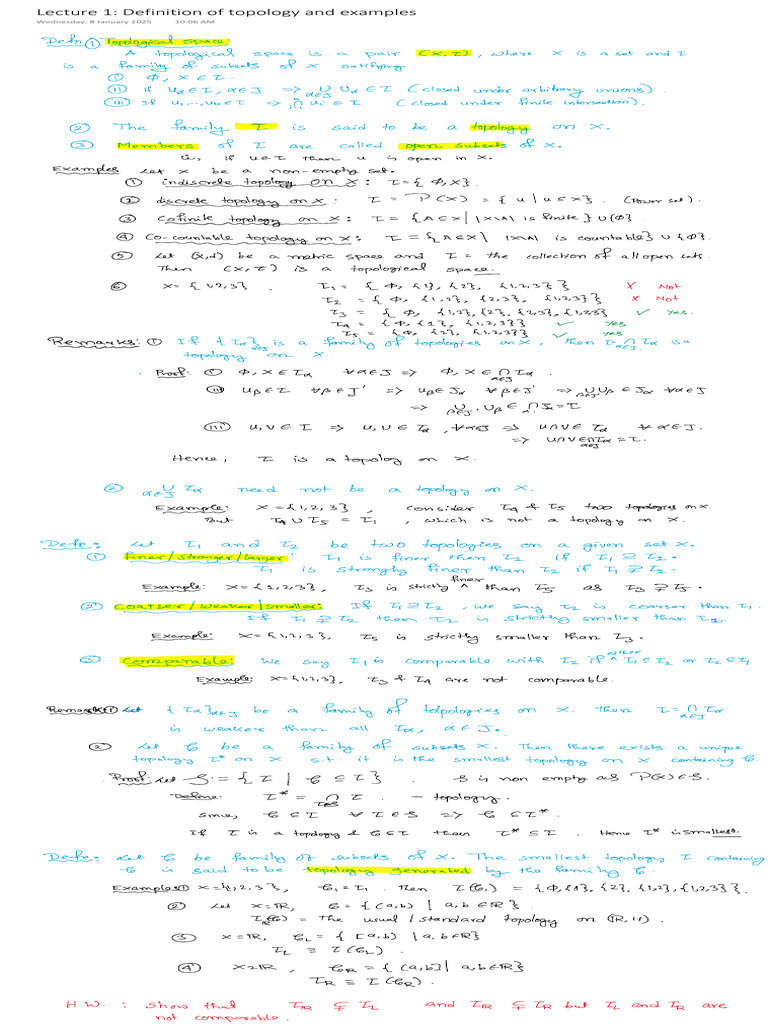 Lecture 1: Definition of topology and examples
Wednesday, 8 January 2025 10:06 AM
Defn ① Topological space
A topological space is a pair (X, τ), where X is a set and τ
is a family of subsets of X satifying
① Φ, X ∈ τ.
ⅱ) If Uα ∈ τ, α∈J => ∪_{α∈J} Uα ∈ τ (closed under arbitrary unions).
ⅲ) If U₁,..., Un ∈ τ => ∩_{i=1}^{n} Ui ∈ τ (closed under finite intersection).
② The family τ is said to be a topology on X.
③ Members of τ are called open subsets of X.
i.e, if U∈τ then U is open in X.
Examples Let X be a non-empty set.
① indiscrete topology on X: τ = {Φ, X}.
② discrete topology on X: τ = P(X) = {U | U ⊆ X} (Power set).
③ Cofinite topology on X: τ = {A⊆X | |X\A| is finite} ∪ {Φ}.
④ Co-countable topology on X: τ = {A⊆X | |X\A| is countable} ∪ {Φ}.
⑤ Let (X,d) be a metric space and τ = the collection of all open sets.
Then (X, τ) is a topological space.
⑥ X = {1,2,3}, τ₁ = {Φ, {1}, {2}, {1,2,3}} ✗ Not
τ₂ = {Φ, {1,2}, {2,3}, {1,2,3}} ✗ Not
τ₃ = {Φ, {1,2}, {2}, {2,3}, {1,2,3} ✓ Yes.
τ₄ = {Φ, {1}, {1,2,3}} ✓ Yes
τ₅ = {Φ, {2}, {1,2,3}} ✓ Yes
Remarks: ① If {τα}_{α∈J} is a family of topologies on X, then τ = ∩_{α∈J} τα is a
topology on X.
Proof: ① Φ, X ∈ τα ∀α∈J => Φ, X ∈ ∩_{α∈J} τα.
ⅱ) Uβ∈τ ∀β∈J' => Uβ∈Jα ∀β∈J' => ∪_{β∈J'} Uβ ∈ Jα ∀α∈J
=> ∪_{β∈J'} Uβ ∈ ∩_{α∈J} Jα = τ
ⅲ) U,V∈τ => U,V∈τα, ∀α∈J => U∩V ∈ τα ∀α∈J.
=> U∩V∈∩_{α∈J} τα = τ.
Hence, τ is a topolog on X.
② ∪_{α∈J} τα need not be a topology on X.
Example: X = {1,2,3}, consider τ₄ & τ₅ two topologies on X
But τ₄ ∪ τ₅ = τ₁, which is not a topology on X.
Defn: Let τ₁ and τ₂ be two topologies on a given set X.
① finer/stronger/larger: τ₁ is finer then τ₂ if τ₁ ⊇ τ₂.
τ₁ is strongly finer than τ₂ if τ₁ ⊋ τ₂.
Example: X = {1,2,3}, τ₃ is strictly ^finer than τ₅ as τ₃ ⊋ τ₅.
② Coarser/weaker/smaller: If τ₁⊇τ₂, we say τ₂ is coarser than τ₁.
If τ₁ ⊋ τ₂ then τ₂ is strictly smaller than τ₂.
Example: X = {1,2,3}, τ₅ is strictly smaller than τ₃.
③ Comparable: We say τ₁ is comparable with τ₂ if ^either τ₁⊆τ₂ or τ₂⊆τ₁
Example: X = {1,2,3}, τ₃ & τ₄ are not comparable.
Remarks: ① Let {τα}_{α∈J} be a family of tolpologies on X. Then τ = ∩_{α∈J} τα
is weaker than all τα, α∈J.
② Let 𝒞 be a family of subsets X. Then there exists a unique
topology τ* on X s.t. it is the smallest topology on X containing 𝒞.
Proof: Let S := {τ | 𝒞 ⊆ τ} S is non empty as P(X)∈S.
Define τ* = ∩_{τ∈S} τ. - topology.
Sine, 𝒞⊆τ ∀ τ∈S => 𝒞 ⊆ τ*.
If τ is a topology & 𝒞⊆τ then τ* ⊆ τ. Hence τ* is smallest.
Defn: Let 𝒞 be family of subsets of X. The smallest topology τ containing
𝒞 is said to be topology generated by the family 𝒞.
Examples ① X={1,2,3}, 𝒞₁=τ₁. Then τ(𝒞₁) = {Φ,{1}, {2}, {1,2}, {1,2,3}}.
② Let X=ℝ, 𝒞 = {(a,b) | a,b∈ℝ}
τ_ℝ(𝒞) = The usual/standard topology on (ℝ, | |).
③ X=ℝ, 𝒞_L = {[a,b) | a,b∈ℝ}
τ_L ≡ τ(𝒞_L).
④ X=ℝ, 𝒞_R = {(a,b] | a,b∈ℝ}
τ_R ≡ τ(𝒞_R).
H.W.: Show that τ_ℝ ⊊ τ_L and τ_ℝ ⊊ τ_R but τ_L and τ_R are
not comparable.